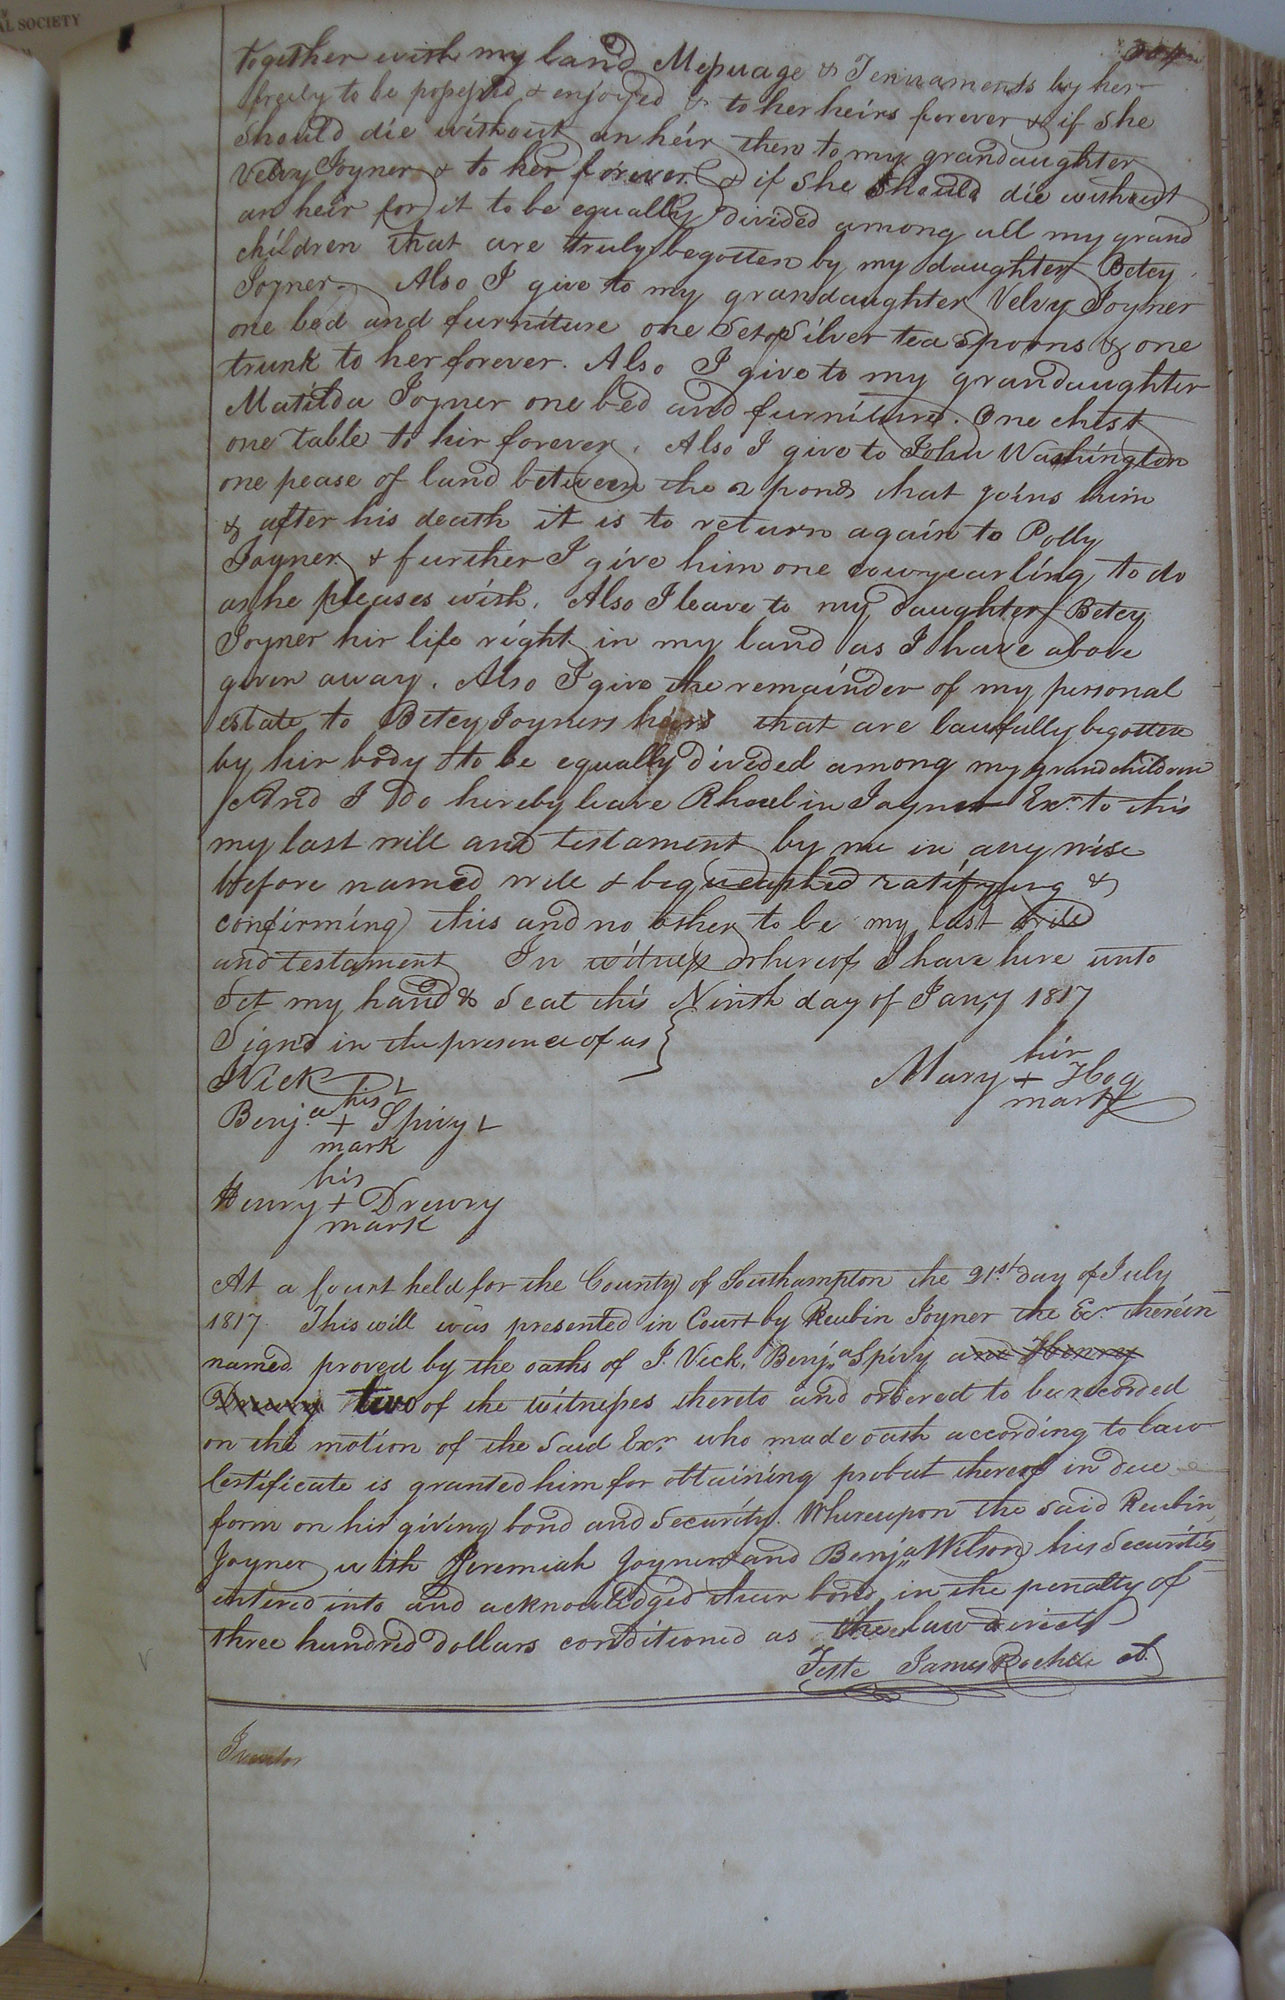 AL SOCIETY
together with my land Messuage & Tennaments by her
freely to be possessed & enjoyed & to her heirs forever & if she
should die without an heir then to my grandaughter
Velvy Joyner & to her forever & if she should die without
an heir for it to be equally divided among all my grand
children that are truly begotten by my daughter Betcy
Joyner. Also I give to my grandaughter Velvy Joyner
one bed and furniture one Set of Silver tea Spoons & one
trunk to her forever. Also I give to my grandaughter
Matilda Joyner one bed and furniture. One chest
one table to hir forever. Also I give to John Washington
one pease of land between the 2 ponds that joins him
& after his death it is to return again to Polly
Joyner & further I give him one cow yearling to do
as he pleases with. Also I leave to my daughter Betcy
Joyner hir life right in my land as I have above
given away. Also I give the remainder of my personal
estate to Betcy Joyners heirs that are lawfully begotten
by hir body to be equally divided among my grandchildren
And I do hereby leave Rhoubin Joyner Exr. to this
my last will and testament by me in any wise
before named will & bequeathed ratifying &
confirming this and no other to be my last will
and testament In witness whereof I have here unto
Set my hand & Seal this Ninth day of Jany 1817
Signd in the presence of us
hir
Mary + Hog
mark
Vick
his
Benja + Spivy
mark
his
Henry + Drewry
mark
At a Court held for the County of Southampton the 21st day of July
1817 This will was presented in Court by Reubin Joyner the Exr therein
named proved by the oaths of J. Vick, Benja Spivy and Henry
Drewry two of the witnesses thereto and ordered to be recorded
on the motion of the Said Exr who made oath according to law
Certificate is granted him for obtaining probat thereof in due
form on his giving bond and Security. Whereupon the said Reubin
Joyner with Jeremiah Joyner and Benja Wilson his Securities
entered into and acknowledged their bond in the penalty of
three hundred dollars conditioned as the law directs
Teste James Rochelle Ct.